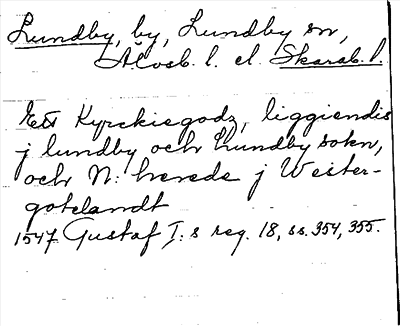 Lundby, by, Lundby sn,
Älvsb. l. el. Skarab. l.
Ett Kyrckiegodz, liggiendis
j lundby och Lundby sokn,
och N: herede j Wester-
gotelandt
1547 Gustaf I:s reg. 18, ss. 354, 355.